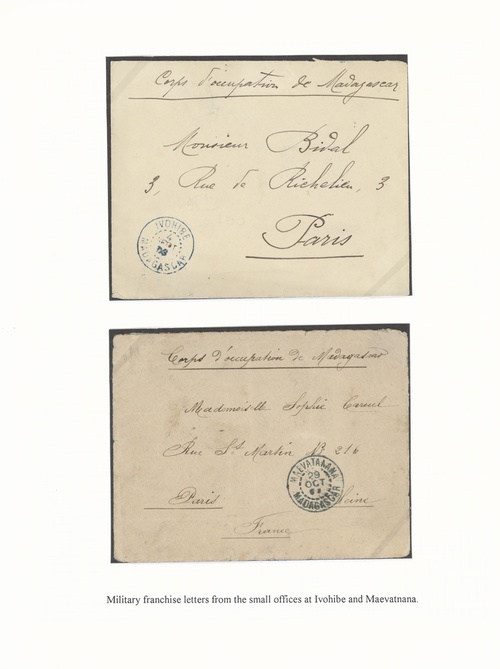 Corps d'occupation de Madagascar
Monsieur Bidal
3, Rue de Richelieu, 3
Paris
IVOHIBE
MADAGASCAR
Corps d'occupation de Madagascar
Mademoiselle Sophie
Rue St Martin No 216
Paris Seine
France
MAEVATANANA
29
OCT
MADAGASCAR
Military franchise letters from the small offices at Ivohibe and Maevatnana.